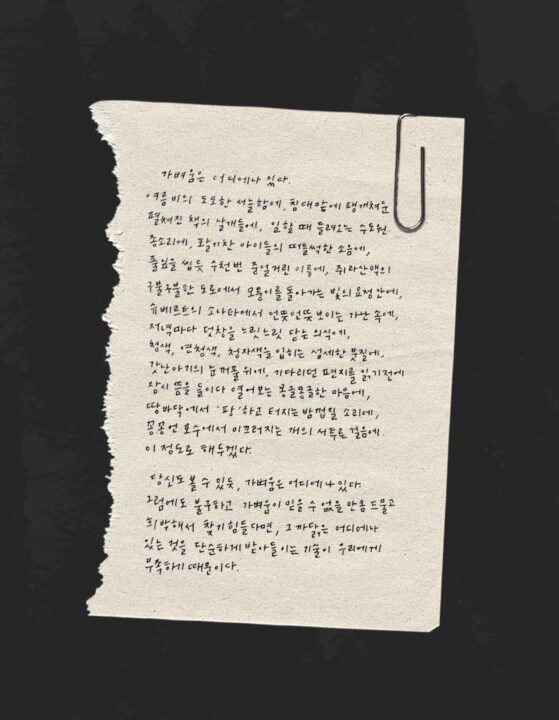 가벼움은 어디에나 있다.
여름 비의 도도한 서늘함에, 침대맡에 팽개쳐둔
펼쳐진 책의 날개들에, 일할 때 들려오는 수도원
종소리에, 활기찬 아이들의 떠들썩한 소음에,
풀잎을 씹듯 수천번 중얼거린 이름에, 쥐라산맥의
구불구불한 도로에서 모퉁이를 돌아가는 빛의 요정안에,
슈베르트의 소나타에서 언뜻언뜻 보이는 가난 속에,
저녁마다 덧창을 느릿느릿 닫는 의식에,
청색, 연청색, 청자색을 입히는 섬세한 붓질에,
갓난아기의 눈꺼풀 위에, 기다리던 편지를 읽기전에
잠시 뜸을 들이다 열어보는 몽글몽글한 마음에,
땅바닥에서 '팡'하고 터지는 밤껍질 소리에,
꽁꽁언 호수에서 미끄러지는 개의 서투른 걸음에.
이 정도로 해두겠다.
당신도 볼 수 있듯, 가벼움은 어디에나 있다.
그럼에도 불구하고 가벼움이 믿을 수 없을 만큼 드물고
희박해서 찾기 힘들다면, 그 까닭은 어디에나
있는 것을 단순하게 받아들이는 기술이 우리에게
부족하기 때문이다.